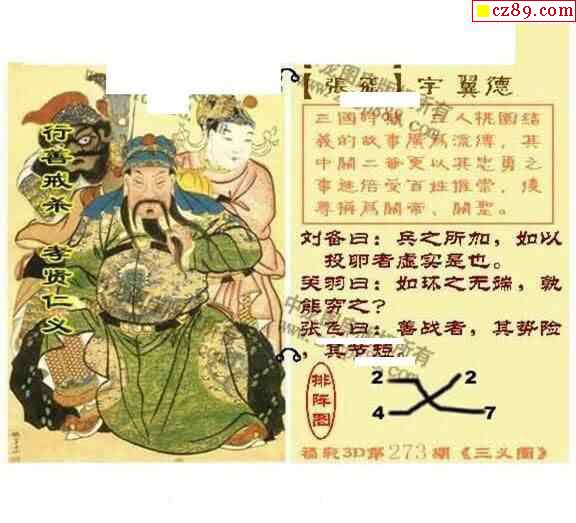 cz89.com
【張飛】字 翼德
三國時期，三人桃園結
義的故事廣爲流傳，其
中關二爺更以其忠勇之
事迹倍受百姓推崇，後
尊稱爲關帝、關聖。
刘备曰：兵之所加，如以
投卵者虚实是也。
关羽曰：如环之无端，孰
能穷之？
张飞曰：善战者，其势险
，其节短
行善戒杀 孝贤仁义
排阵图
2 2
4 7
福彩3D第273期《三义图》